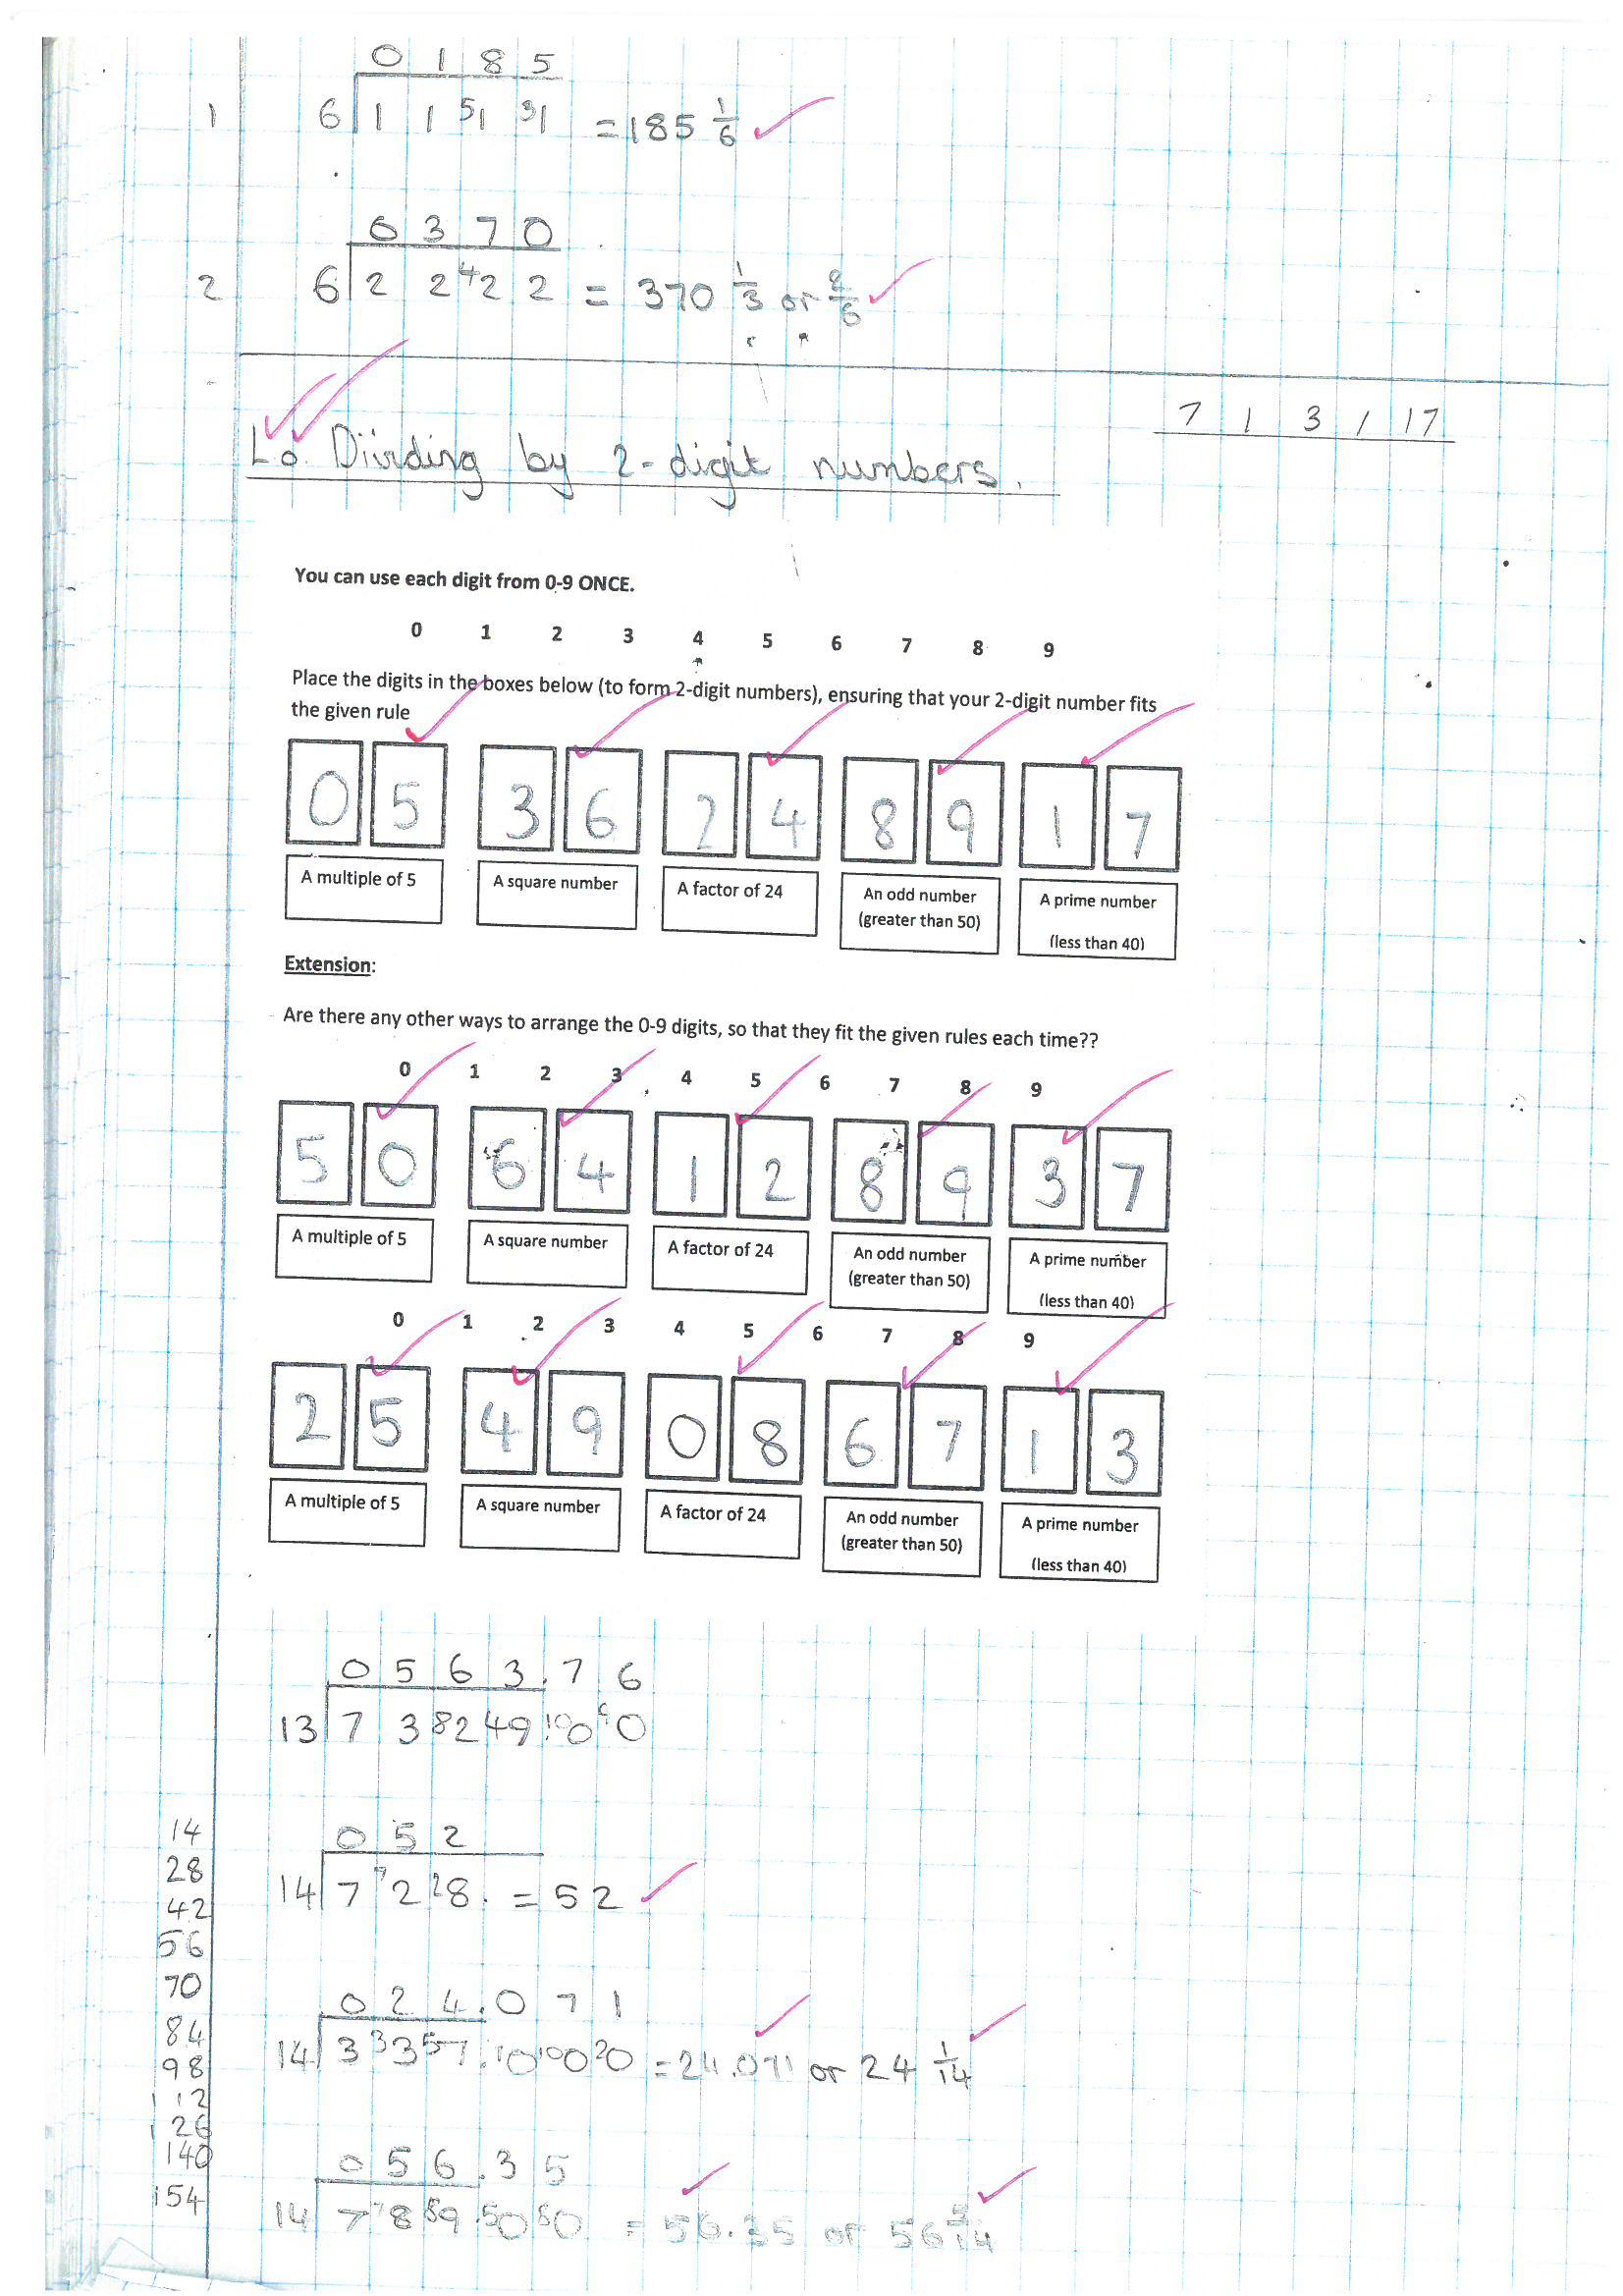 0 1 8 5
1 6 1 1 51 31 = 185 1/6
6 3 7 0
2 6 2 2 42 2 = 370 1/3 or 2/6
7 1 3 / 17
Lo. Dividing by 2-digit numbers.
You can use each digit from 0-9 ONCE.
0 1 2 3 4 5 6 7 8 9
Place the digits in the boxes below (to form 2-digit numbers), ensuring that your 2-digit number fits
the given rule
0 5 3 6 2 4 8 9 1 7
A multiple of 5 A square number A factor of 24 An odd number (greater than 50) A prime number (less than 40)
Extension:
Are there any other ways to arrange the 0-9 digits, so that they fit the given rules each time??
0 1 2 3 4 5 6 7 8 9
5 0 6 4 1 2 8 9 3 7
A multiple of 5 A square number A factor of 24 An odd number (greater than 50) A prime number (less than 40)
0 1 2 3 4 5 6 7 8 9
2 5 4 9 0 8 6 7 1 3
A multiple of 5 A square number A factor of 24 An odd number (greater than 50) A prime number (less than 40)
0 5 6 3 . 7 6
13 7 3 82 49 . 100 90
14
28
42
56
70
84
98
112
126
140
154
0 5 2
14 7 72 28 . = 52
0 2 4 . 0 7 1
14 3 33 57 . 10 100 20 = 24.071 or 24 1/14
0 5 6 . 3 5
14 7 78 89 . 50 80 = 56.35 or 56 5/14